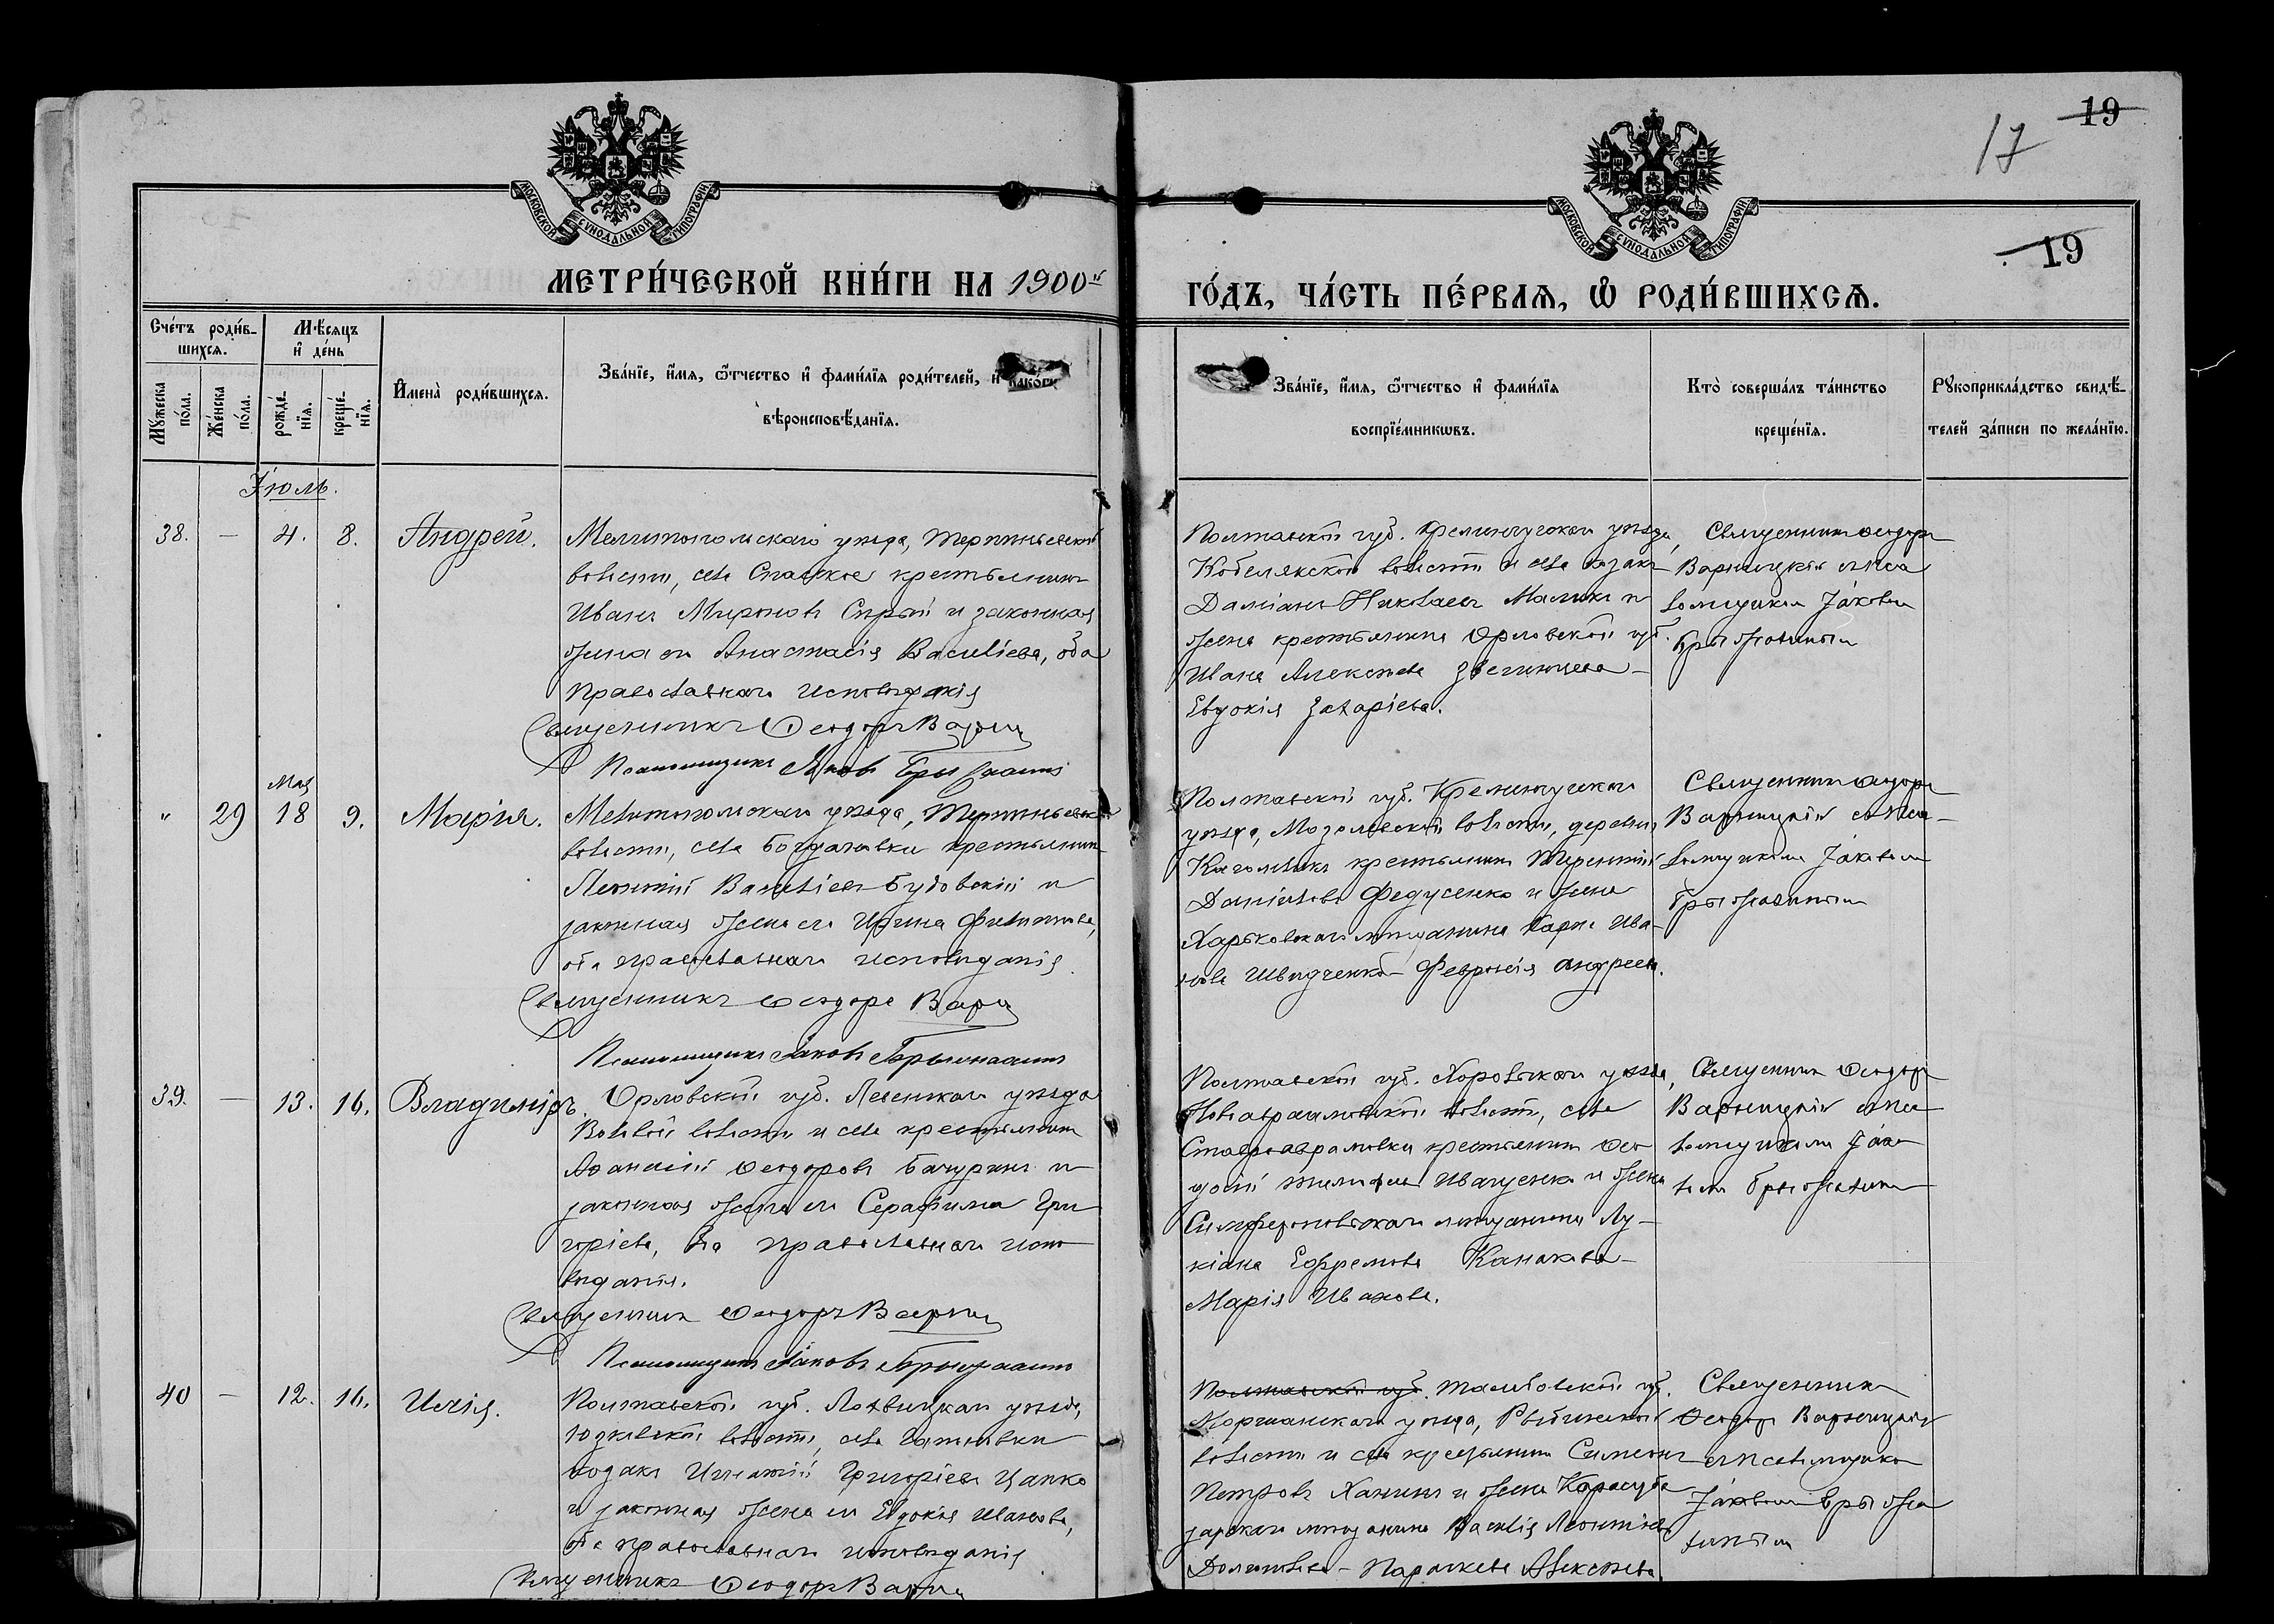 19
17
МОСКОВСКОЙ СѴНОДАЛЬНОЙ ТИПОГРАФІИ
МОСКОВСКОЙ СѴНОДАЛЬНОЙ ТИПОГРАФІИ
19
МЕТРИ́ЧЕСКОЙ КНИ́ГИ НА 1900й
ГО́ДЪ, ЧА́СТЬ ПЕ́РВАѦ, Ѽ РОДИ́ВШИХСѦ.
Сче́тъ роди́в-
шихсѧ.
Мѣ́сяцъ
и҆ де́нь
Мꙋ́жеска
по́ла.
Же́нска
по́ла.
рожде́-
нїѧ.
креще́-
нїѧ.
И҆мена̀ роди́вшихсѧ.
Зва́нїе, и҆́мѧ, ѻ҆́тчество и҆ фами́лїѧ роди́телей, и҆ како́гѡ
вѣроисповѣ́данїѧ.
Зва́нїе, и҆́мѧ, ѻ҆́тчество и҆ фами́лїѧ
воспрїе́мникѡвъ.
Кто̀ соверша́лъ та́инство
креще́нїѧ.
Рꙋкоприкла́дство свидѣ́-
телей за́писи по жела́нїю.
Іюль.
38. — 4. 8. Андрей.
Мелитопольскаго уѣзда, Терпиньевской
волости, села Спаское крестьянинъ
Иванъ Мироновъ Сирый и законная
жена его Анастасія Василіева, оба
православнаго исповѣданія
Священникъ Ѳеодоръ Варн
Псаломщикъ Яковъ
Полтавской губ. Кременчугскаго уѣзда,
Кобелякской волости и села козакъ
Даміанъ Николаевъ Малик и
жена крестьянина Орловской губ.
Ивана Алексѣева Звегинцева —
Евдокія Захаріева.
Священникъ Ѳеодоръ
Варницкій съ пса
ломщикомъ Іаковом
Мая
" 29 18 9. Марія.
Мелитопольскаго уѣзда, Терпиньевской
волости, села Богдановки крестьянинъ
Леонтій Василіевъ Будовскій и
законная жена его Ирина Филиппова,
оба православнаго исповѣданія
Священникъ Ѳеодоръ Варн
Псаломщикъ Іаковъ
Полтавской губ. Кременчугскаго
уѣзда, волости, деревни
крестьянинъ Терентій
Даніиловъ Федусенко и жена
Харьковскаго мѣщанина Карпа Ива-
нова Швидченко Февронія Андреева.
Священникъ Ѳеодоръ
Варницкій съ пса-
ломщикомъ Іаковом
39. — 13. 16. Владиміръ.
Орловской губ. уѣзда
волости и села крестьянинъ
Аѳанасій Ѳеодоровъ Бачуринъ и
законная жена его Серафима Гри
горіева, оба православнаго испо
вѣданія.
Священникъ Ѳеодоръ Варн
Псаломщикъ Іаковъ
Полтавской губ. Хорольскаго уѣзда,
Новоаврамовской волости, села
Староаврамовки крестьянинъ Ѳео
досій Иващенко и жена
Симферопольскаго мѣщанина Лу-
кіана Ефремова Канакова —
Марія Иванова.
Священникъ Ѳеодоръ
Варницкій съ пса
ломщикомъ Іако
вом
40 — 12. 16. Илія.
Полтавской губ. Лохвицкаго уѣзда,
волости, села
козакъ Игнатій Григоріевъ Цапко
и законная жена его Евдокія Иванова,
оба православнаго исповѣданія
Священникъ Ѳеодоръ Варн
Полтавской губ. Тамбовской губ.
Моршанскаго уѣзда, Рыбинской
волости и села крестьянинъ Симеонъ
Петровъ Ханинъ и жена Карасуба
зарскаго мѣщанина Василія Леонтіева
— Параскева Алексѣева
Священникъ
Ѳеодоръ Варницкій
съ псаломщикомъ
Іаковомъ